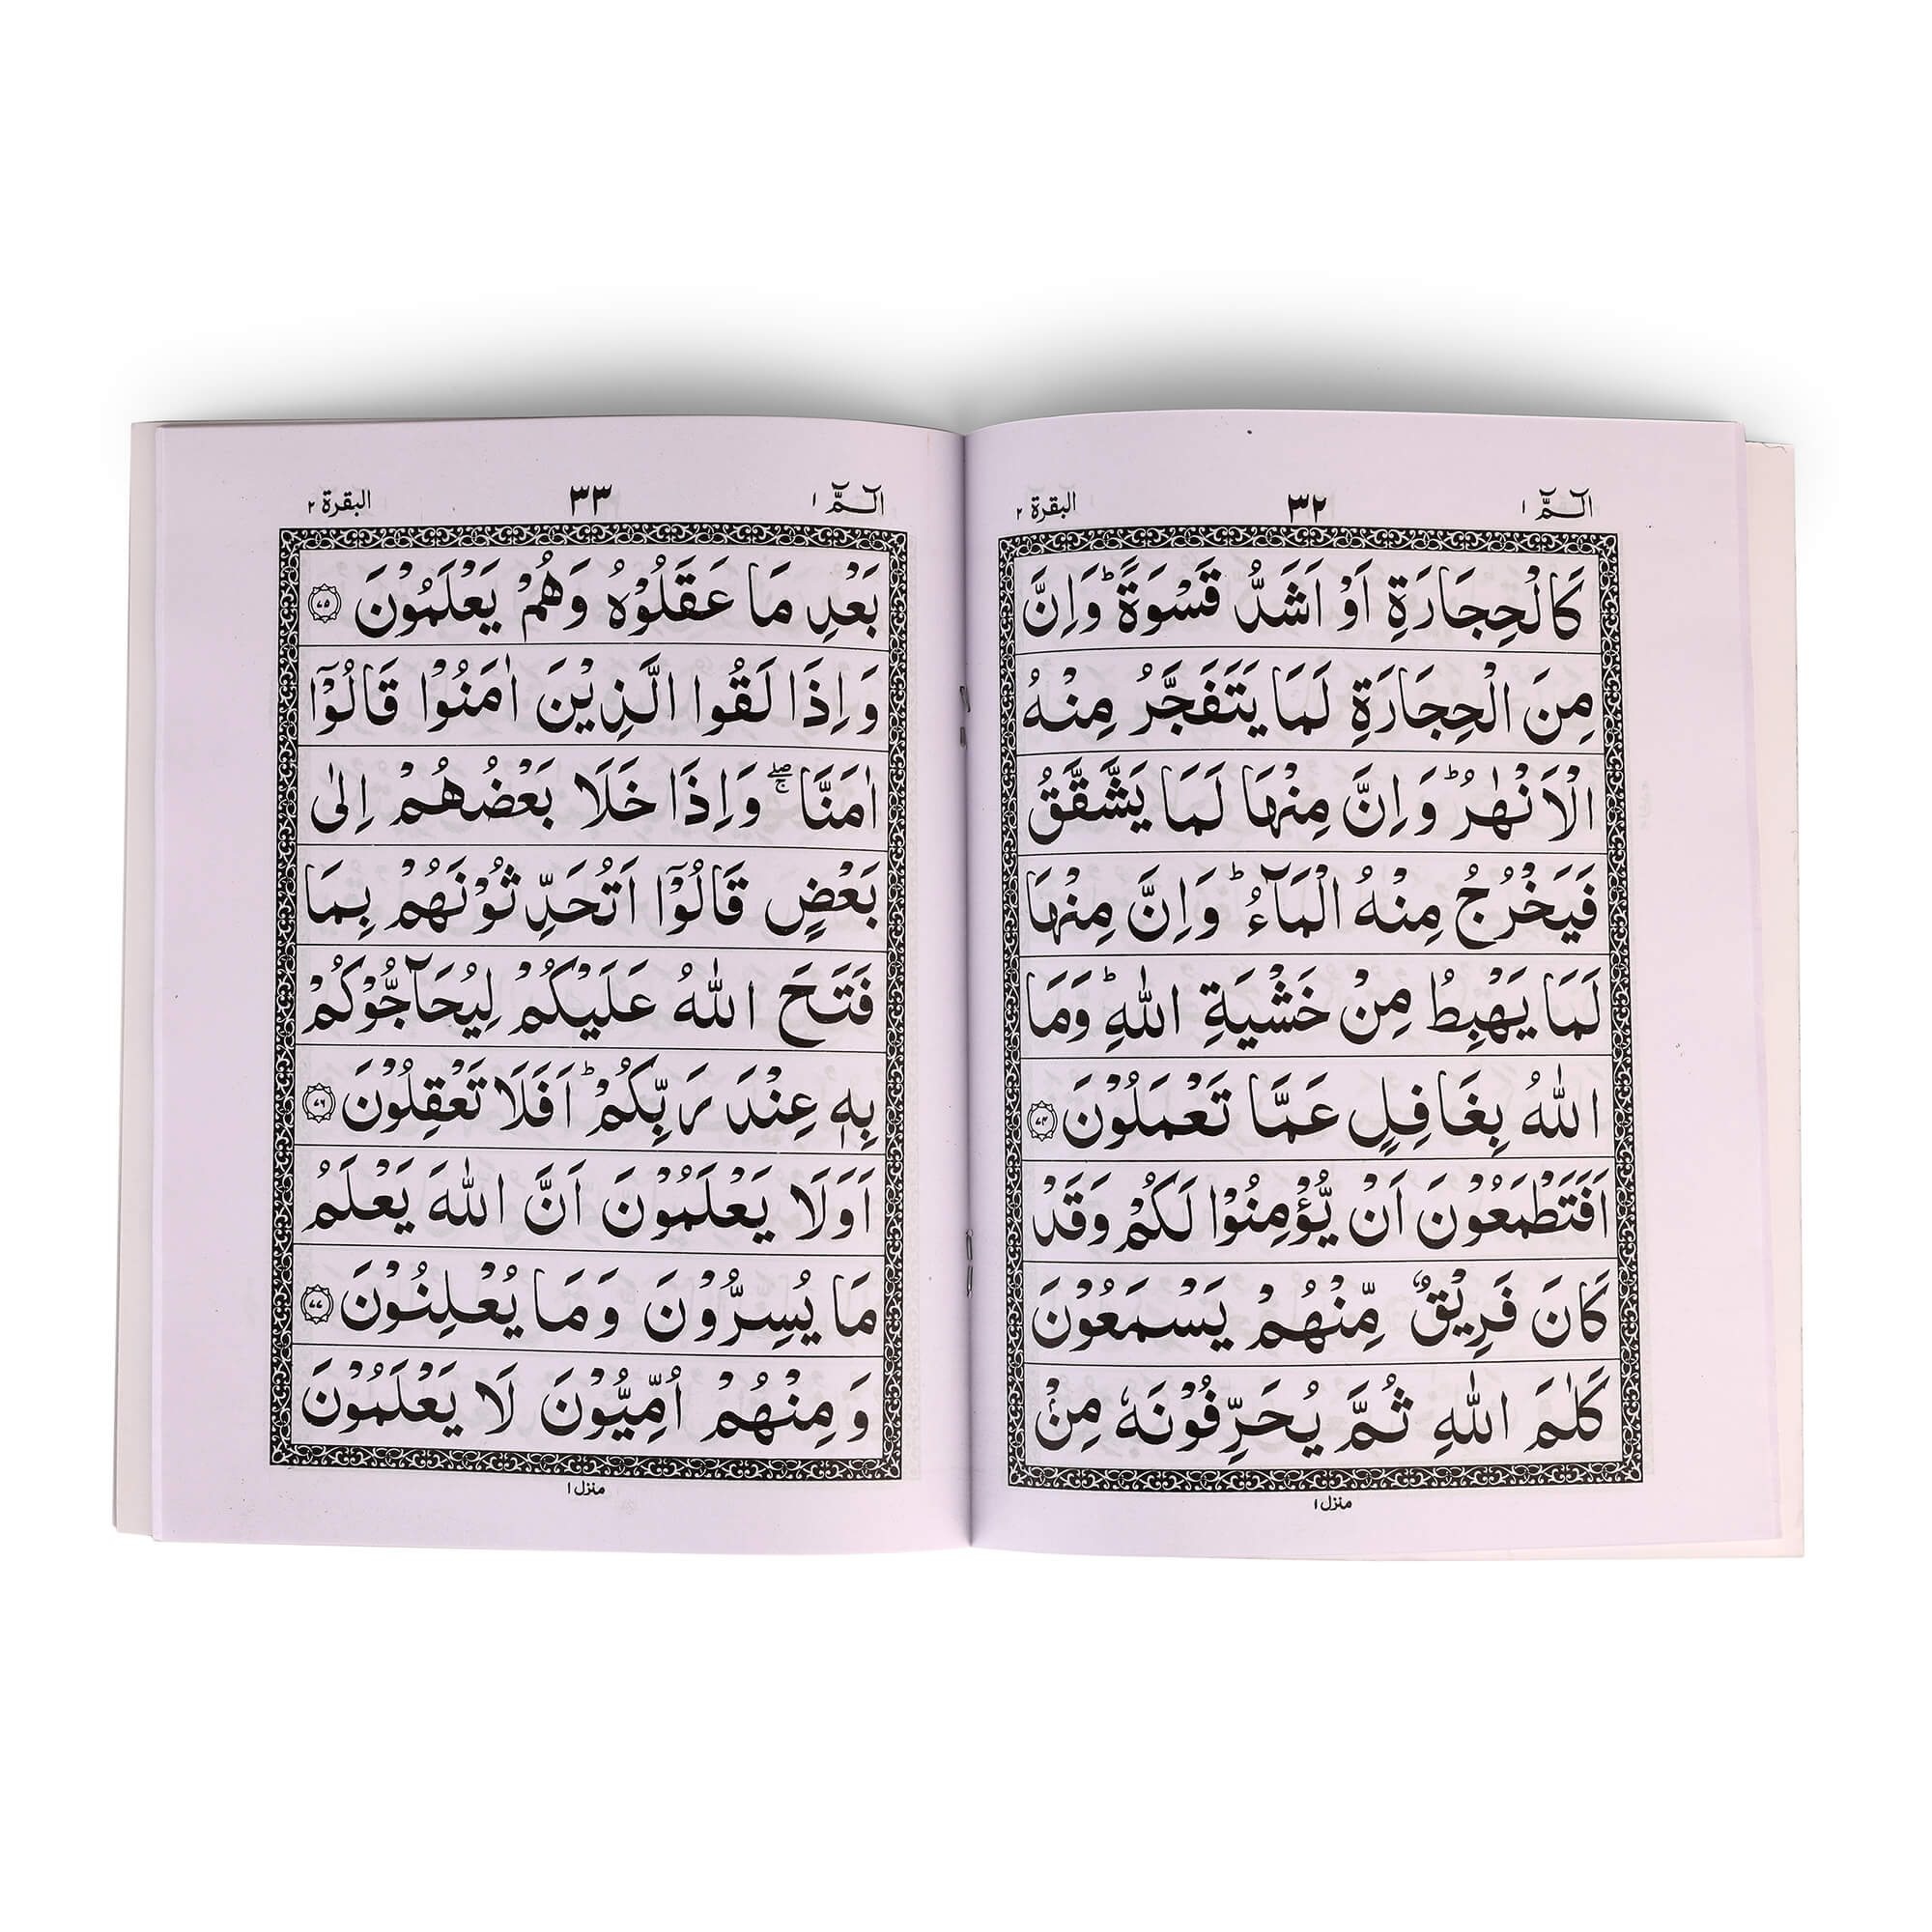 الٓـمّٓ ١ ٣٢ البقرة ٢
كَالْحِجَارَةِ اَوْ اَشَدُّ قَسْوَةً ؕ وَاِنَّ
مِنَ الْحِجَارَةِ لَمَا يَتَفَجَّرُ مِنْهُ
الْاَنْهٰرُ ؕ وَاِنَّ مِنْهَا لَمَا يَشَّقَّقُ
فَيَخْرُجُ مِنْهُ الْمَآءُ ؕ وَاِنَّ مِنْهَا
لَمَا يَهْبِطُ مِنْ خَشْيَةِ اللّٰهِ ؕ وَمَا
اللّٰهُ بِغَافِلٍ عَمَّا تَعْمَلُوْنَ ۝٧٤
اَفَتَطْمَعُوْنَ اَنْ يُّؤْمِنُوْا لَكُمْ وَقَدْ
كَانَ فَرِيْقٌ مِّنْهُمْ يَسْمَعُوْنَ
كَلٰمَ اللّٰهِ ثُمَّ يُحَرِّفُوْنَهٗ مِنْۢ
منزل ١
الٓـمّٓ ١ ٣٣ البقرة ٢
بَعْدِ مَا عَقَلُوْهُ وَهُمْ يَعْلَمُوْنَ ۝٧٥
وَاِذَا لَقُوا الَّذِيْنَ اٰمَنُوْا قَالُوْٓا
اٰمَنَّا ۖۚ وَاِذَا خَلَا بَعْضُهُمْ اِلٰى
بَعْضٍ قَالُوْٓا اَتُحَدِّثُوْنَهُمْ بِمَا
فَتَحَ اللّٰهُ عَلَيْكُمْ لِيُحَآجُّوْكُمْ
بِهٖ عِنْدَ رَبِّكُمْ ؕ اَفَلَا تَعْقِلُوْنَ ۝٧٦
اَوَلَا يَعْلَمُوْنَ اَنَّ اللّٰهَ يَعْلَمُ
مَا يُسِرُّوْنَ وَمَا يُعْلِنُوْنَ ۝٧٧
وَمِنْهُمْ اُمِّيُّوْنَ لَا يَعْلَمُوْنَ
منزل ١